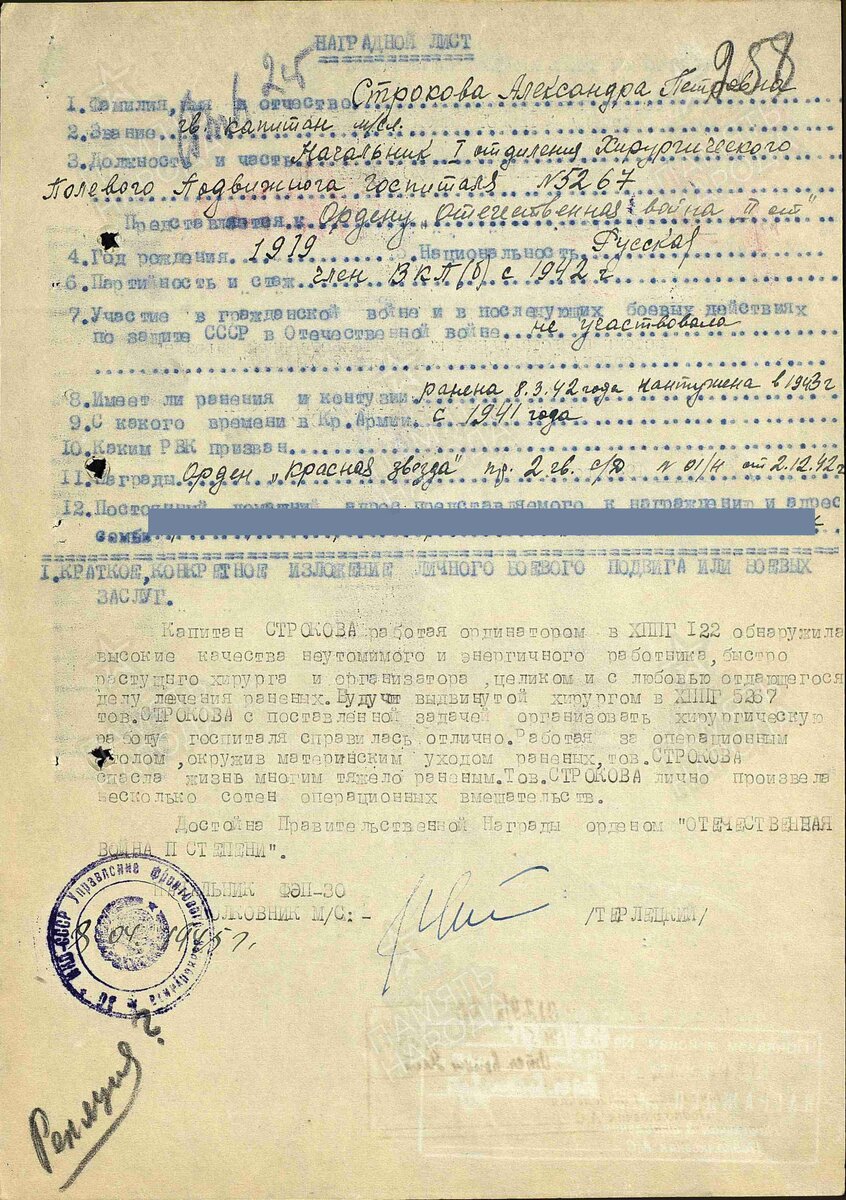 НАГРАДНОЙ ЛИСТ
258
25
1.Фамилия,имя и отчество Строкова Александра Петровна
2.Звание гв. капитан м/сл.
3.Должность и часть Начальник I отделения Хирургического
Полевого Подвижного Госпиталя N5267
Представляется к Ордену "Отечественная война II ст"
4.Год рождения 1919 5.Национальность Русская
6.Партийность и стаж член ВКП(б) с 1942 г
7.Участие в гражданской войне и в последующих боевых действиях
по защите СССР в Отечественной войне не участвовала
8.Имеет ли ранения и контузии ранена 8.3.42 года контужена в 1943 г
9.С какого времени в Кр.Армии с 1941 года
10.Каким РВК призван
11.Награды Орден „Красная звезда" пр. 2 гв. с/д N 01/н от 2.12.42 г
12.Постоянный домашний адрес представляемого к награждению и адрес
семьи
I.КРАТКОЕ,КОНКРЕТНОЕ ИЗЛОЖЕНИЕ ЛИЧНОГО БОЕВОГО ПОДВИГА ИЛИ БОЕВЫХ
ЗАСЛУГ.
Капитан СТРОКОВА работая ординатором в ХППГ 122 обнаружила
высокие качества неутомимого и энергичного работника,быстро
растущго хирурга и организатора ,целиком и с любовью отдающегося
делу лечения раненых.Будучи выдвинутой хирургом в ХППГ 5267
тов.СТРОКОВА с поставленной задачей организовать хирургическую
работу госпиталя справилась отлично.Работая за операционным
столом ,окружив материнским уходом раненых,тов.СТРОКОВА
спасла жизнь многим тяжело раненым.Тов.СТРОКОВА лично произвела
несколько сотен операционных вмешательств.
Достойна Правительственной Награды орденом "ОТЕЧЕСТВЕННАЯ
ВОЙНА П СТЕПЕНИ".
НАЧАЛЬНИК ФЭП-30
ПОЛКОВНИК М/С:- /ТЕРЛЕЦКИЙ/
8 04 1945 г.
НКО-СССР Управление фронтового эвакопункта № 30
Реляция 2